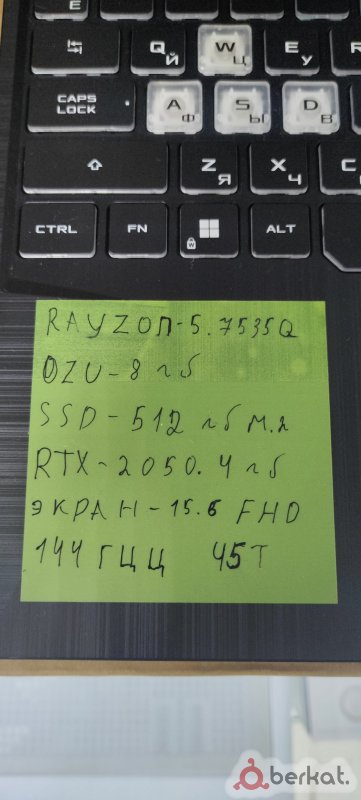 Ё
Q Й W Ц E У R
CAPS LOCK A Ф S Ы D В
Z Я X Ч C
CTRL FN W ALT
RAYZOП-5.7535Q
OZU-8 гб
SSD-512 гб м.2
RTX-2050.4 гб
ЭКРАН-15.6 FHD
144 ГЦЦ 45Т
berkat.